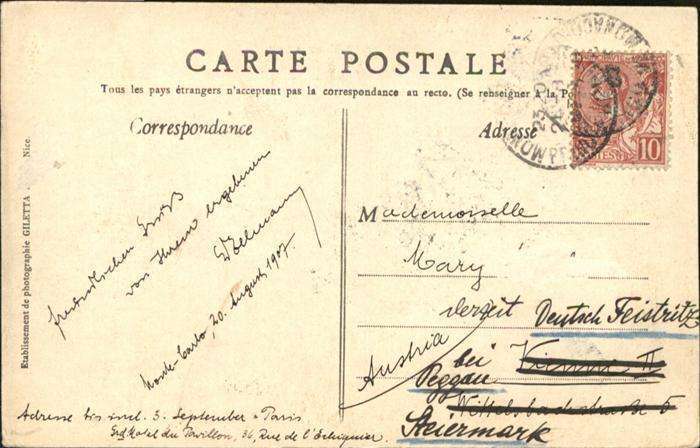 CARTE POSTALE
Tous les pays étrangers n'acceptent pas la correspondance au recto. (Se renseigner à la Po
Correspondance
Adresse
10
Etablissement de photographie GILETTA Nice.
freundlichen Gruß
von Ihrem ergebenen
Monte-Carlo, 20. August 1907
Adresse bis incl. 3. September = Paris
Grd Hotel du Pavillon, 36, Rue de l'Echiquier
Mademoiselle
Mary
derzeit Deutsch Feistritz
bei
Peggau
Vienne II
Wittelsbachstraße 5
Steiermark
Austria